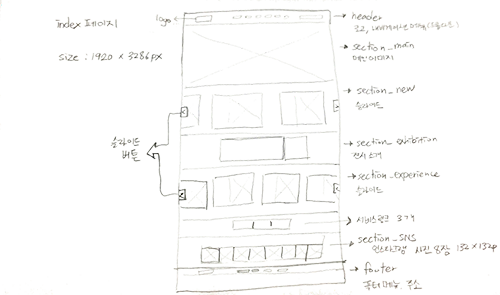 index 페이지
size : 1920 x 3286px
logo
header
section_main
메인이미지
section_new
슬라이드
슬라이드
버튼
section_exhibition
전시소개
section_experience
슬라이드
서비스링크 3가지
section_SNS
인스타그램 사진 6장 132 x 132px
footer
푸터메뉴, 주소